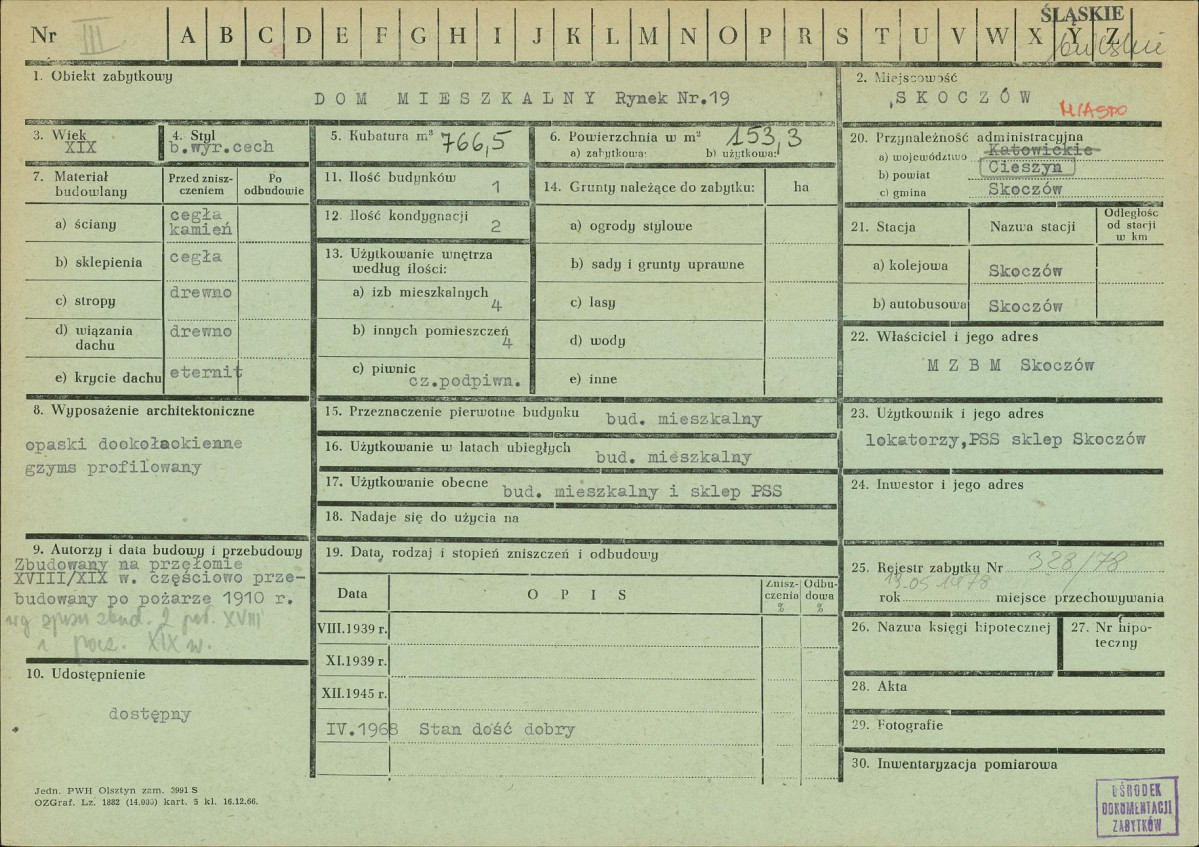 Nr III A B C D E F G H I J K L M N O P R S T U V W X Y Z
ŚLĄSKIE
bielskie
1. Obiekt zabytkowy
DOM MIESZKALNY Rynek Nr.19
2. Miejscowość
SKOCZÓW
MIASTO
3. Wiek
XIX
4. Styl
b.wyr.cech
5. Kubatura m³ 766,5
6. Powierzchnia w m² 153,3
a) zabytkowa: b) użytkowa:
7. Materiał budowlany
Przed zniszczeniem
Po odbudowie
a) ściany cegła kamień
b) sklepienia cegła
c) stropy drewno
d) wiązania dachu drewno
e) krycie dachu eternit
8. Wyposażenie architektoniczne
opaski dookołaokienne
gzyms profilowany
9. Autorzy i data budowy i przebudowy
Zbudowany na przełomie
XVIII/XIX w. częściowo prze-
budowany po pożarze 1910 r.
wg spisu zbud. 2 poł. XVIII
i pocz. XIX w.
10. Udostępnienie
dostępny
11. Ilość budynków
1
12. Ilość kondygnacji
2
13. Użytkowanie wnętrza
według ilości:
a) izb mieszkalnych
4
b) innych pomieszczeń
4
c) piwnic
cz.podpiwn.
14. Grunty należące do zabytku: ha
a) ogrody stylowe
b) sady i grunty uprawne
c) lasy
d) wody
e) inne
15. Przeznaczenie pierwotne budynku bud. mieszkalny
16. Użytkowanie w latach ubiegłych bud. mieszkalny
17. Użytkowanie obecne bud. mieszkalny i sklep PSS
18. Nadaje się do użycia na
19. Data, rodzaj i stopień zniszczeń i odbudowy
Data OPIS Zniszczenia % Odbudowa %
VIII.1939 r.
XI.1939 r.
XII.1945 r.
IV.1968 Stan dość dobry
20. Przynależność administracyjna
a) województwo Katowickie
b) powiat Cieszyn
c) gmina Skoczów
21. Stacja Nazwa stacji Odległość od stacji w km
a) kolejowa Skoczów
b) autobusowa Skoczów
22. Właściciel i jego adres
M Z B M Skoczów
23. Użytkownik i jego adres
lokatorzy,PSS sklep Skoczów
24. Inwestor i jego adres
25. Rejestr zabytku Nr 328/78
rok 19.05.1978 miejsce przechowywania
26. Nazwa księgi hipotecznej
27. Nr hipo-
teczny
28. Akta
29. Fotografie
30. Inwentaryzacja pomiarowa
Jedn. PWH Olsztyn zam. 3991 S
OZGraf. Lz. 1882 (14.000) kart. 5 kl. 16.12.66.
OŚRODEK
DOKUMENTACJI
ZABYTKÓW